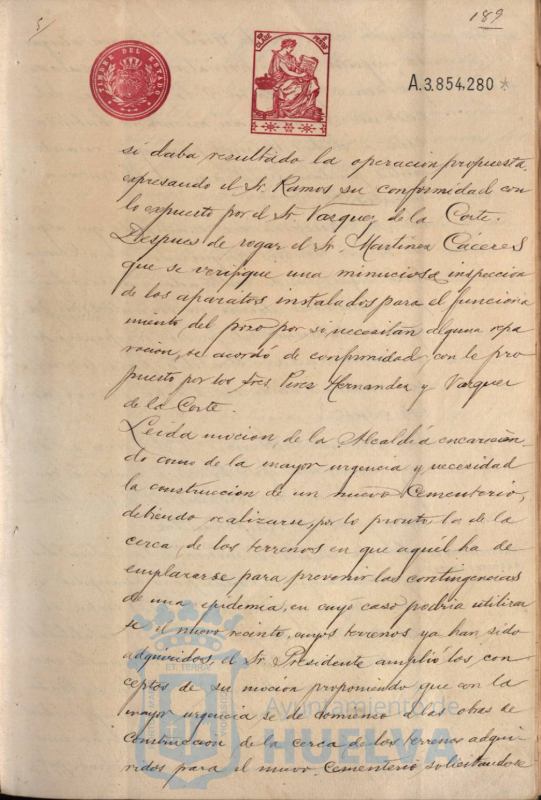 5
189
TIMBRE DEL ESTADO
A.3.854,280
si daba resultado la operacion propuesta,
expresando el Sr. Ramos su conformidad con
lo expuesto por el Sr. Vazquez de la Corte.
Despues de rogar el Sr. Martinez Cáceres
que se verifique una minuciosa inspeccion
de los aparatos instalados para el funciona
miento del pozo por si necesitan alguna repa
racion, se acordó de conformidad con lo pro
puesto por los Sres. Perez Hernandez y Vazquez
de la Corte.
Leida mocion de la Alcaldía encarecien-
do como de la mayor urgencia y necesidad
la construccion de un nuevo Cementerio,
debiendo realizarse, por lo pronto, la de la
cerca de los terrenos en que aquél ha de
emplazarse para prevenir las contingencias
de una epidemia, en cuyo caso podria utilizar
se el nuevo recinto, cuyos terrenos ya han sido
adquiridos, el Sr. Presidente amplió los con
ceptos de su mocion proponiendo que con la
mayor urgencia se dé comienzo a las obras de
construccion de la cerca de los terrenos adqui-
ridos para el nuevo Cementerio solicitandose
Ayuntamiento de
HUELVA